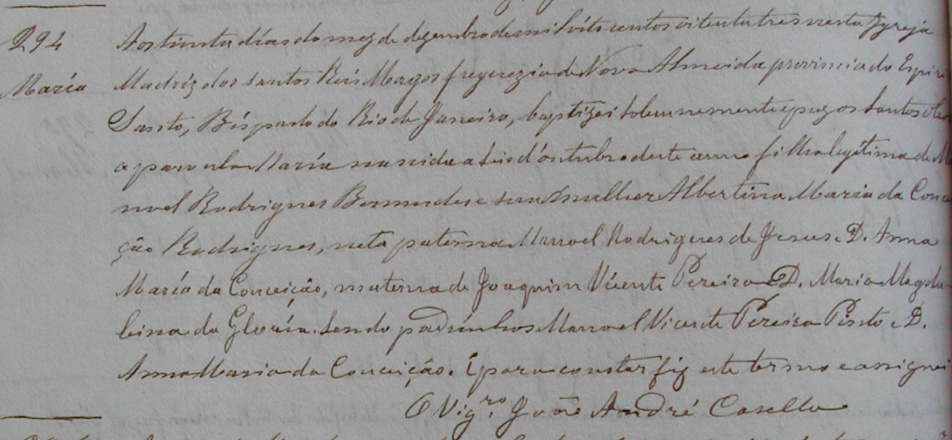 294
María
Aos trinta dias do mez de dezembro de mil oito centos oitenta tres nesta Igreja
Matriz dos santos Reis Magos freguezia de Nova Almeida provincia do Espiri
Santo, Bispado do Rio de Janeiro, baptizei solemnemente e puz os santos oleos
a parvula María nascida a seis d'outubro deste anno filha legítima de Ma
noel Rodrigues Bermudes e sua mulher Albertina Maria da Concei
ção Rodrigues, neta paterna Manoel Rodrigues de Jesus e D. Anna
María da Conceição, materna de Joaquim Vicente Pereira e D. Maria Magda
lina da Glória. Sendo padrinhos Manoel Vicente Pereira Pinto e D.
Anna Maria da Conceição. E para constar fiz este termo e assignei
O Vigro João André Casella